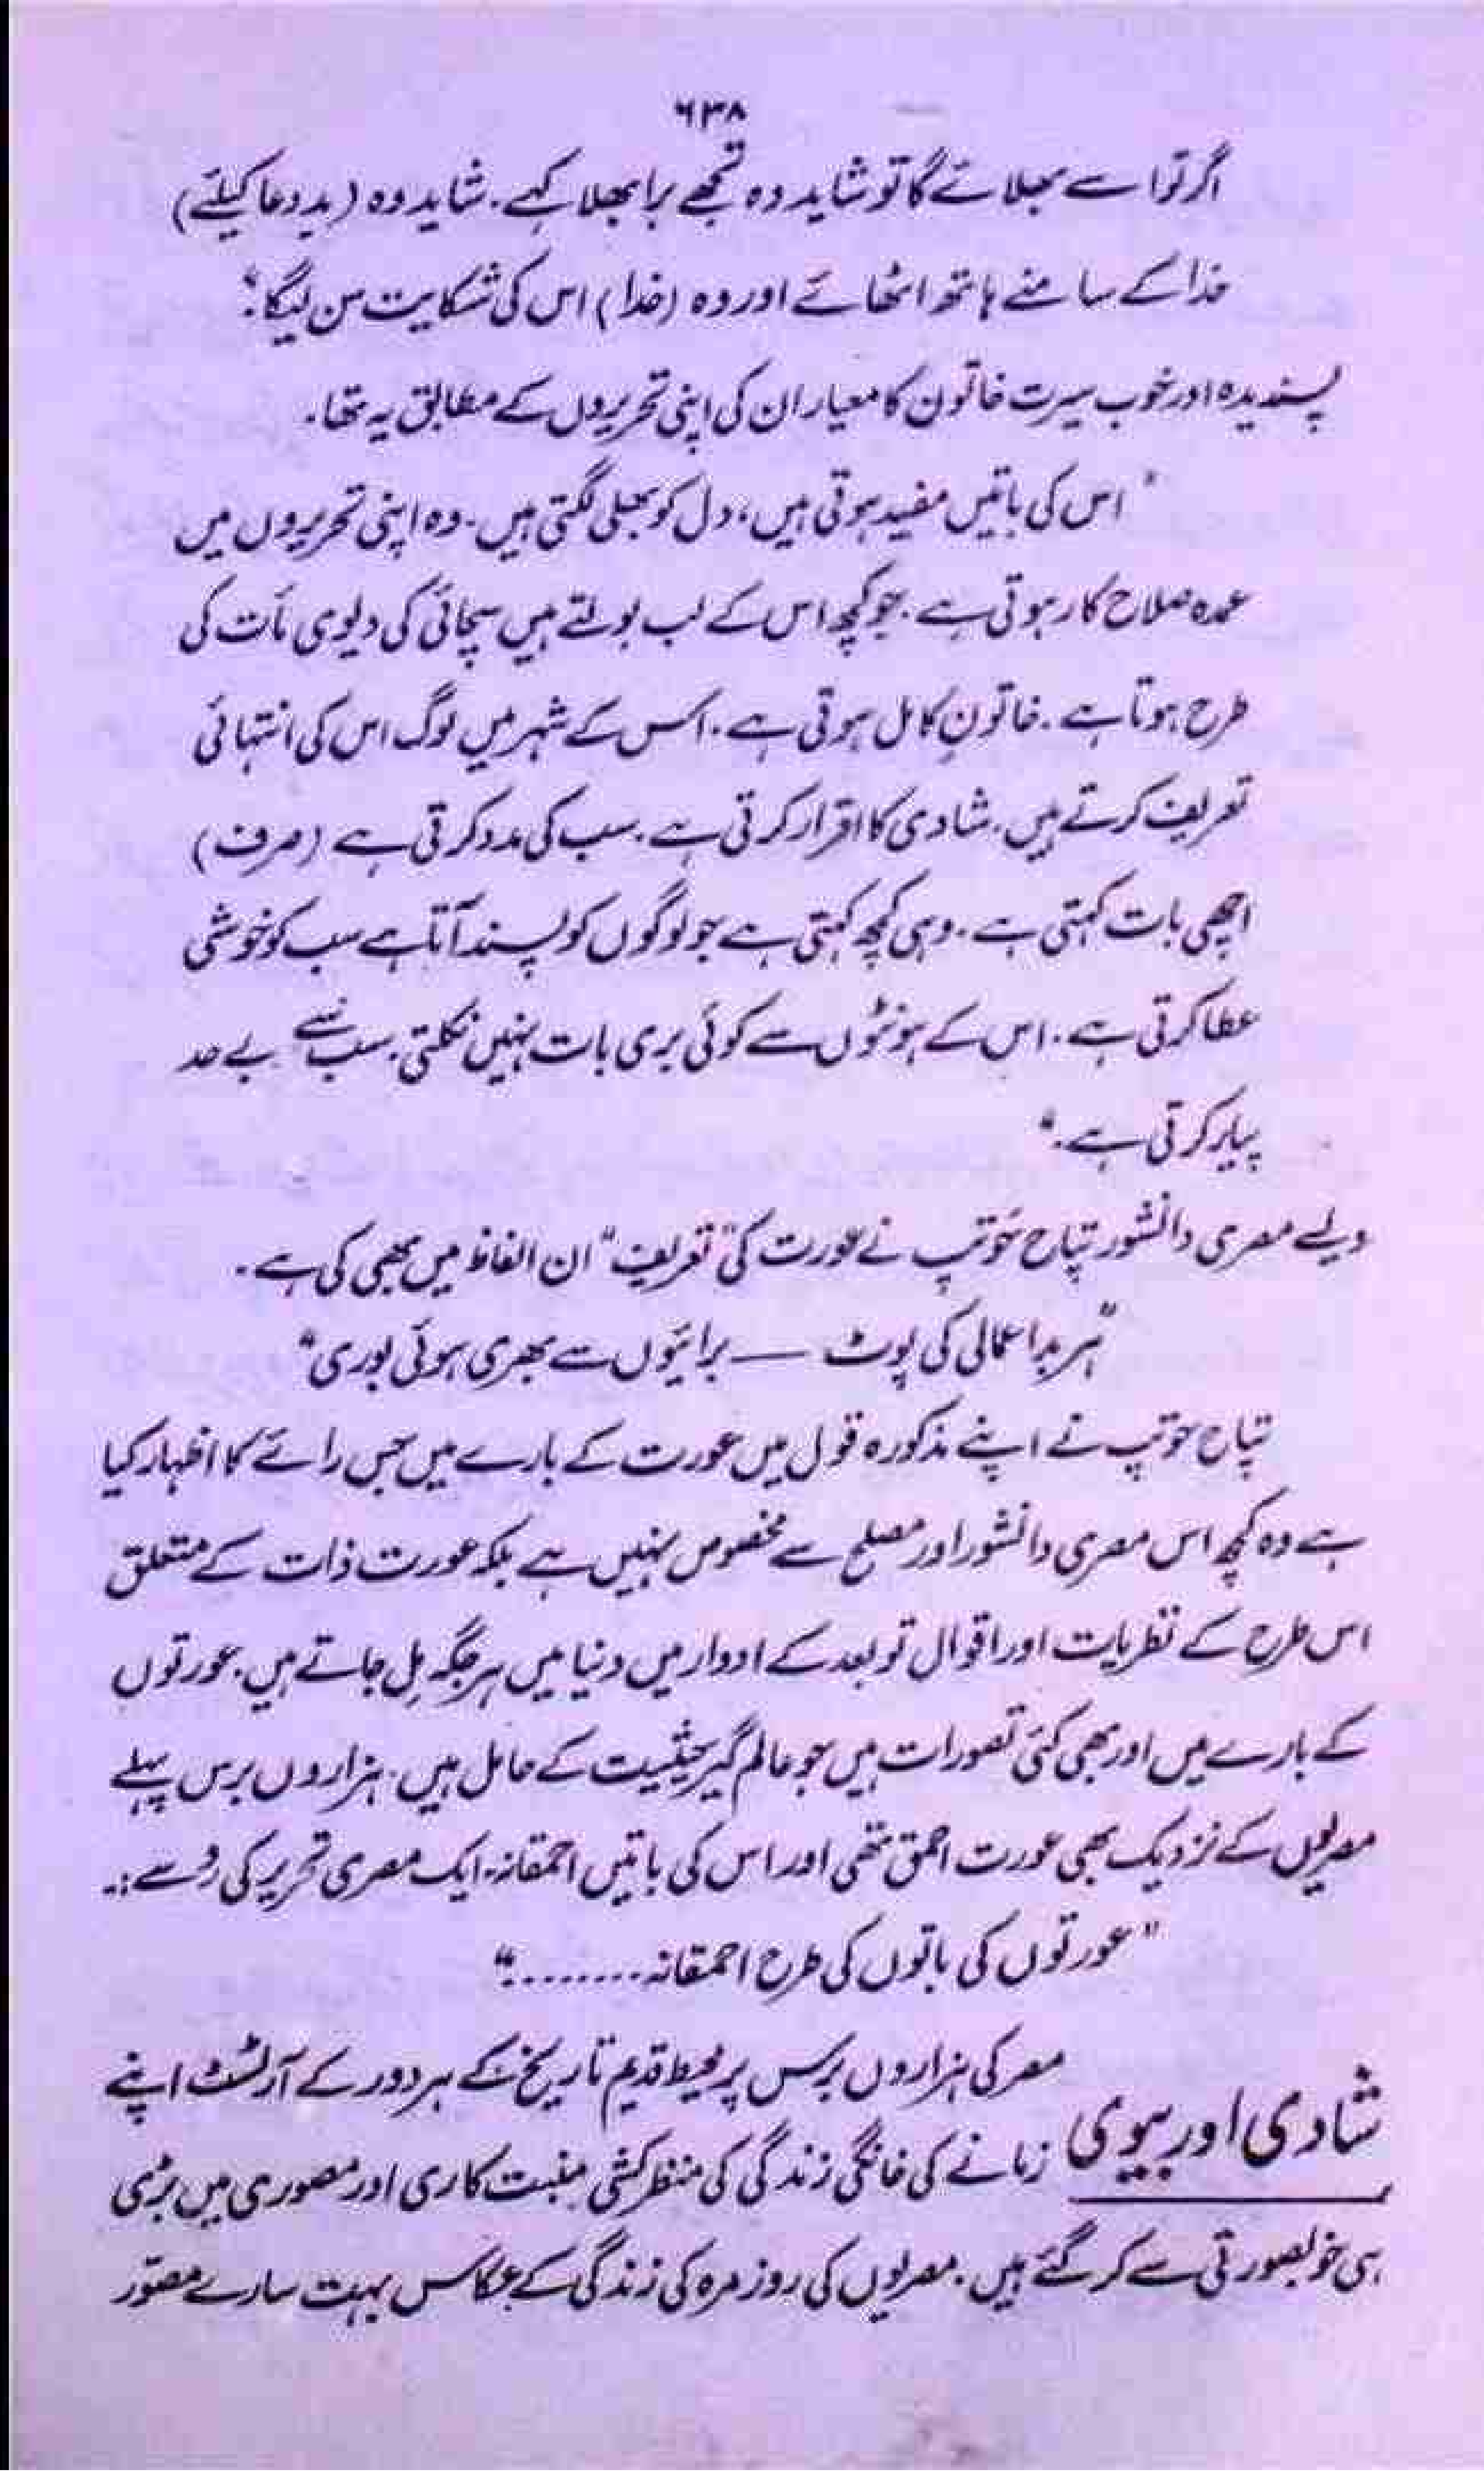 ۶۳۸
اگر تو اسے بھلائے گا تو شاید وہ تجھے برا بھلا کہے۔ شاید وہ (بددعا کیلئے)
خدا کے سامنے ہاتھ اٹھائے اور وہ (خدا) اس کی شکایت سن لیگا؛"
پسندیدہ اور خوب سیرت خاتون کا معیار ان کی اپنی تحریروں کے مطابق یہ تھا۔
"اس کی باتیں مفید ہوتی ہیں، دل کو بھلی لگتی ہیں۔ وہ اپنی تحریروں میں
عمدہ صلاح کار ہوتی ہے۔ جو کچھ اس کے لب بولتے ہیں سچائی کی دیوی مأت کی
طرح ہوتا ہے۔ خاتونِ کامل ہوتی ہے۔ اس کے شہر میں لوگ اس کی انتہائی
تعریف کرتے ہیں۔ شادی کا اقرار کرتی ہے۔ سب کی مدد کرتی ہے (صرف)
اچھی بات کہتی ہے۔ وہی کچھ کہتی ہے جو لوگوں کو پسند آتا ہے سب کو خوشی
عطا کرتی ہے۔ اس کے ہونٹوں سے کوئی بری بات نہیں نکلتی۔ سب سے بے حد
پیار کرتی ہے۔"
ویسے مصری دانشور تپاح حوتپ نے عورت کی "تعریف" ان الفاظ میں بھی کی ہے۔
"ہر بد اعمالی کی پوٹ — برائیوں سے بھری ہوئی بوری"
تپاح حوتپ نے اپنے مذکورہ قول میں عورت کے بارے میں جس رائے کا اظہار کیا
ہے وہ کچھ اس مصری دانشور اور مصلح سے مخصوص نہیں ہے بلکہ عورت ذات کے متعلق
اس طرح کے نظریات اور اقوال تو بعد کے ادوار میں دنیا میں ہر جگہ مِل جاتے ہیں۔ عورتوں
کے بارے میں اور بھی کئی تصورات ہیں جو عالم گیر حیثیت کے حامل ہیں۔ ہزاروں برس پہلے
مصریوں کے نزدیک بھی عورت احمق تھی اور اس کی باتیں احمقانہ۔ ایک مصری تحریر کی رُو سے:۔
"عورتوں کی باتوں کی طرح احمقانہ........"
شادی اور بیوی
مصر کی ہزاروں برس پر محیط قدیم تاریخ کے ہر دور کے آرٹسٹ اپنے
زمانے کی خانگی زندگی کی منظر کشی منبت کاری اور مصوری میں بڑی
ہی خوبصورتی سے کر گئے ہیں۔ مصریوں کی روزمرہ کی زندگی کے عکاس بہت سارے مصوّر